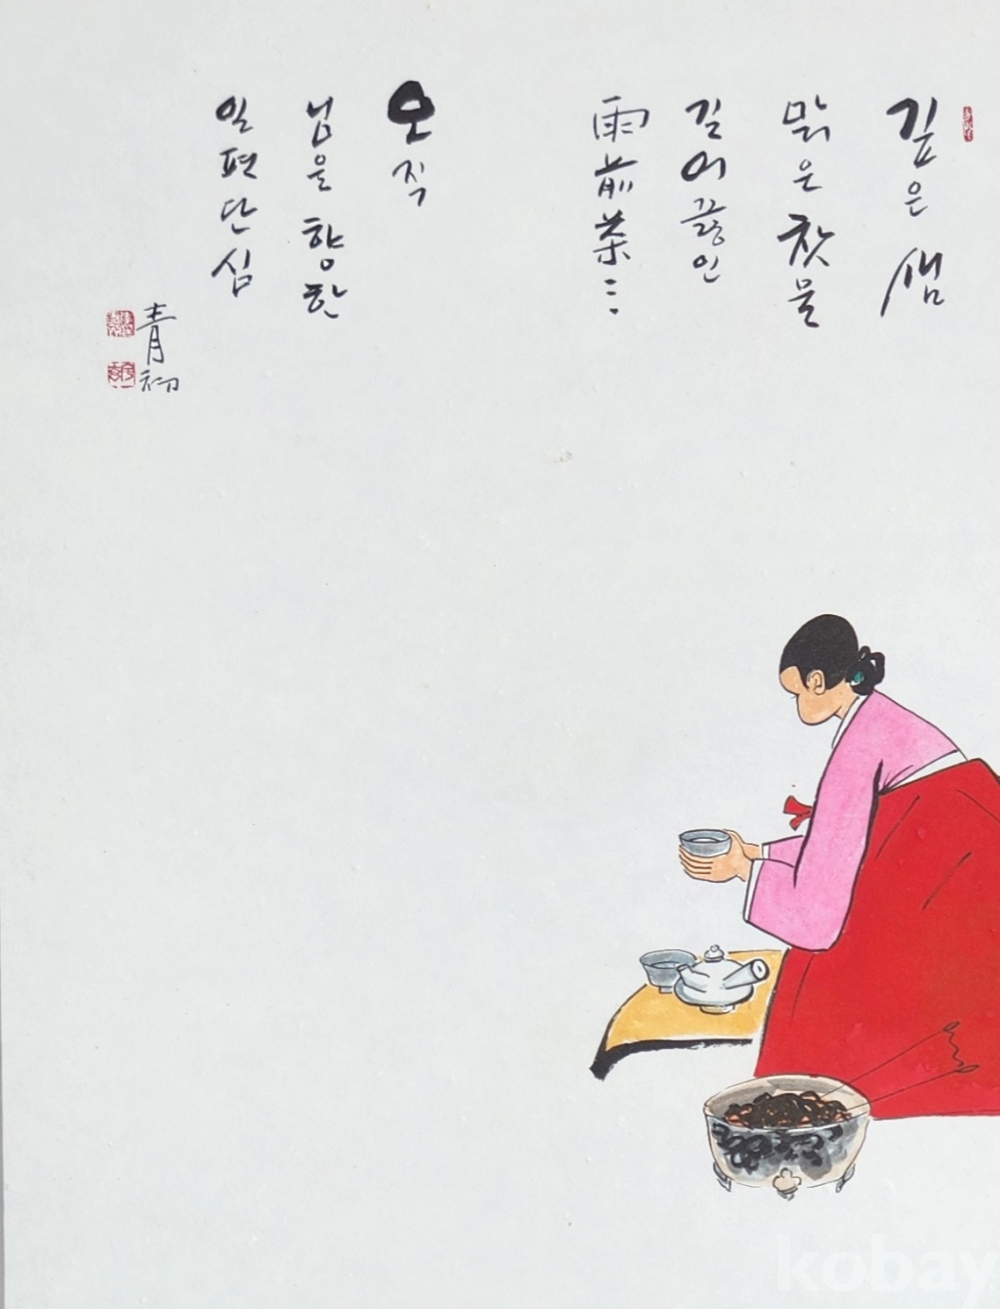 깊은 샘
맑은 찻물
길어 끓인
雨前茶⋮⋮
오직
님을 향한
일편단심
青初
kobay